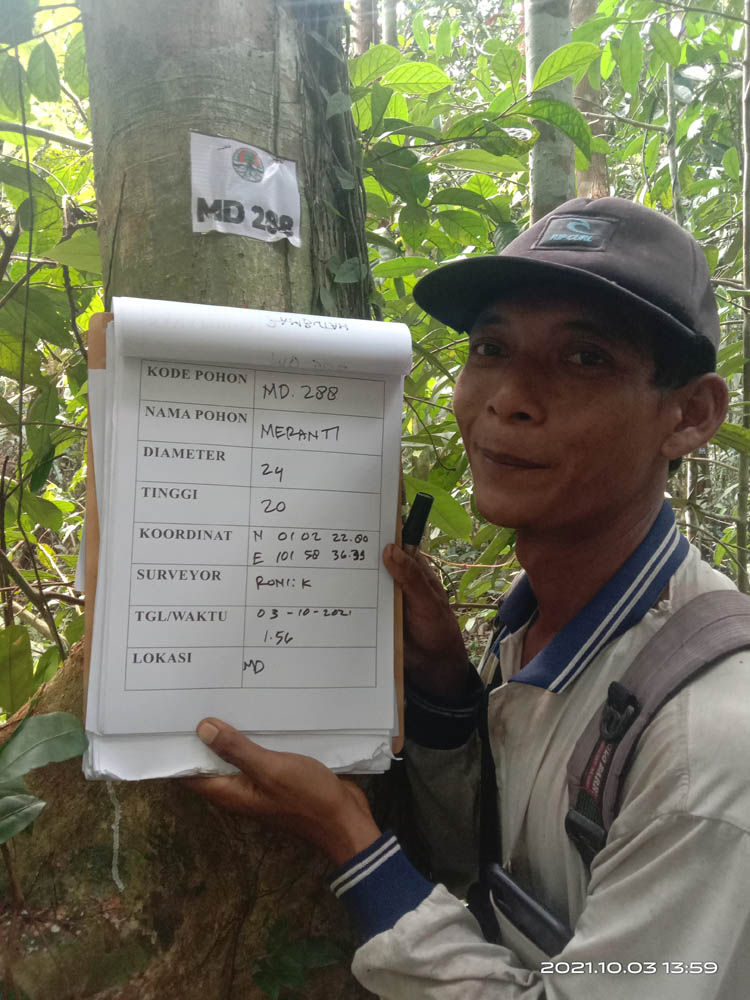 MD 288
RIP CURL
KODE POHON MD. 288
NAMA POHON MERANTI
DIAMETER 24
TINGGI 20
KOORDINAT N 01 02 22.80
E 101 58 36.39
SURVEYOR RONI: K
TGL/WAKTU 03 -10-2021
1.56
LOKASI MD
2021.10.03 13:59